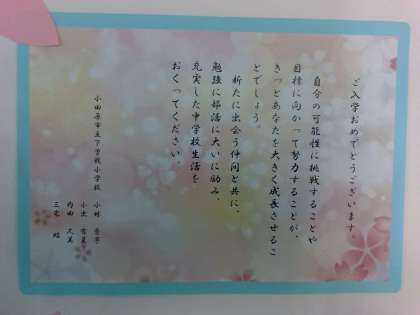 ご入学おめでとうございます。
自分の可能性に挑戦することや
目標に向かって努力することが、
きっとあなたを大きく成長させるこ
とでしょう。
新たに出会う仲間と共に、
勉強に部活に大いに励み、
充実した中学校生活を
おくってください。
小田原市立下曽我小学校
小林
内田 久美